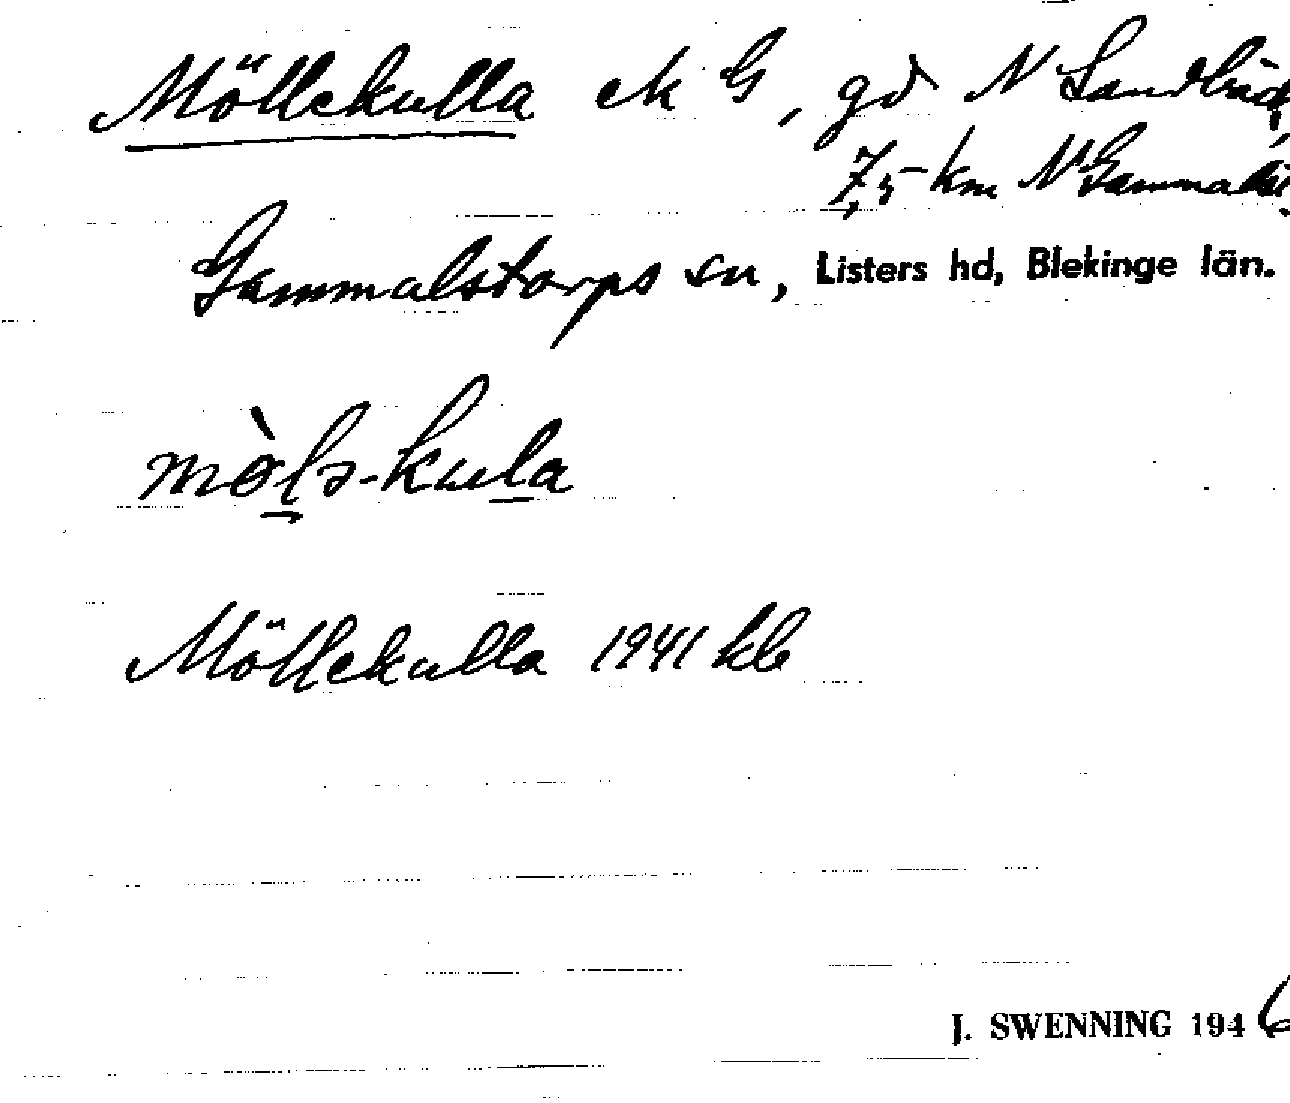 Möllekulla ek G, gd N Sandbäck
7,5 km N Gammals
Gammalstorps sn, Listers hd, Blekinge län.
mòlə-kula
Möllekulla 1941 kb
J. SWENNING 1946